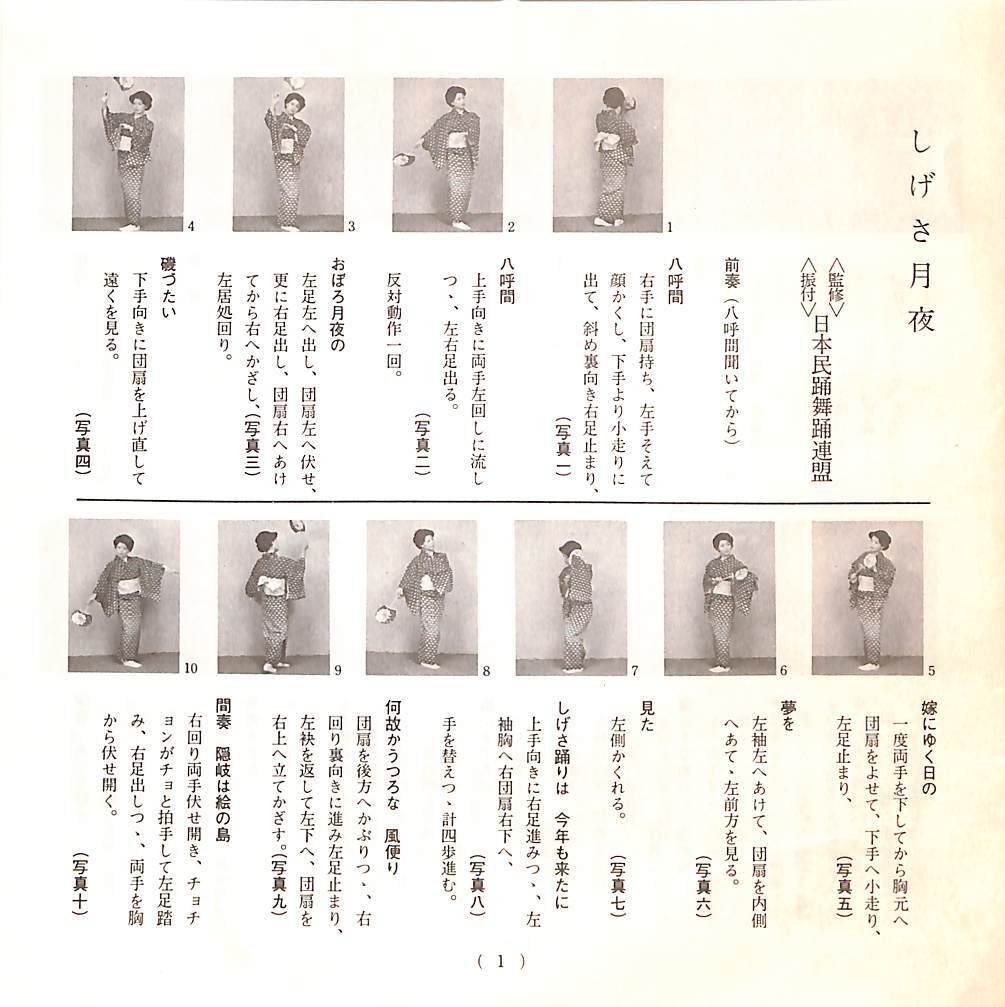 しげさ月夜
〈監修〉
〈振付〉
日本民踊舞踊連盟
前奏（八呼間聞いてから）
八呼間
右手に団扇持ち、左手そえて
顔かくし、下手より小走りに
出て、斜め裏向き右足止まり、
（写真一）
八呼間
上手向きに両手左回しに流し
つゝ、左右足出る。
（写真二）
反対動作一回。
おぼろ月夜の
左足左へ出し、団扇左へ伏せ、
更に右足出し、団扇右へあけ
てから右へかざし、（写真三）
左居処回り。
磯づたい
下手向きに団扇を上げ直して
遠くを見る。
（写真四）
1
2
3
4
嫁にゆく日の
一度両手を下してから胸元へ
団扇をよせて、下手へ小走り、
左足止まり、
（写真五）
夢を
左袖左へあけて、団扇を内側
へあて、左前方を見る。
（写真六）
見た
左側かくれる。
（写真七）
しげさ踊りは　今年も来たに
上手向きに右足進みつゝ、左
袖胸へ右団扇右下へ、
（写真八）
手を替えつゝ計四歩進む。
何故かうつろな　風便り
団扇を後方へかぶりつゝ、右
回り裏向きに進み左足止まり、
左袂を返して左下へ、団扇を
右上へ立てかざす。（写真九）
間奏　隠岐は絵の島
右回り両手伏せ開き、チョチ
ョンがチョと拍手して左足踏
み、右足出しつゝ、両手を胸
から伏せ開く。
（写真十）
5
6
7
8
9
10
( 1 )